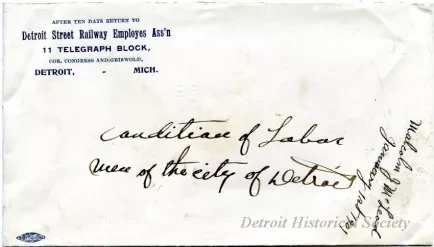 AFTER TEN DAYS RETURN TO
Detroit Street Railway Employes Ass'n
11 TELEGRAPH BLOCK,
COR. CONGRESS AND GRISWOLD,
DETROIT, - MICH.
condition of Labor
men of the city of Detroit
Malcolm J McLeod
January 1st 1901
Detroit Historical Society